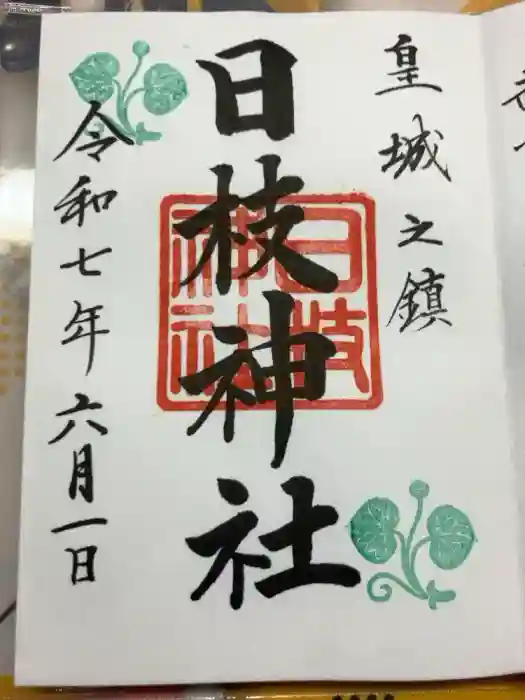 皇城之鎮
日枝神社
日枝神社
令和七年六月一日